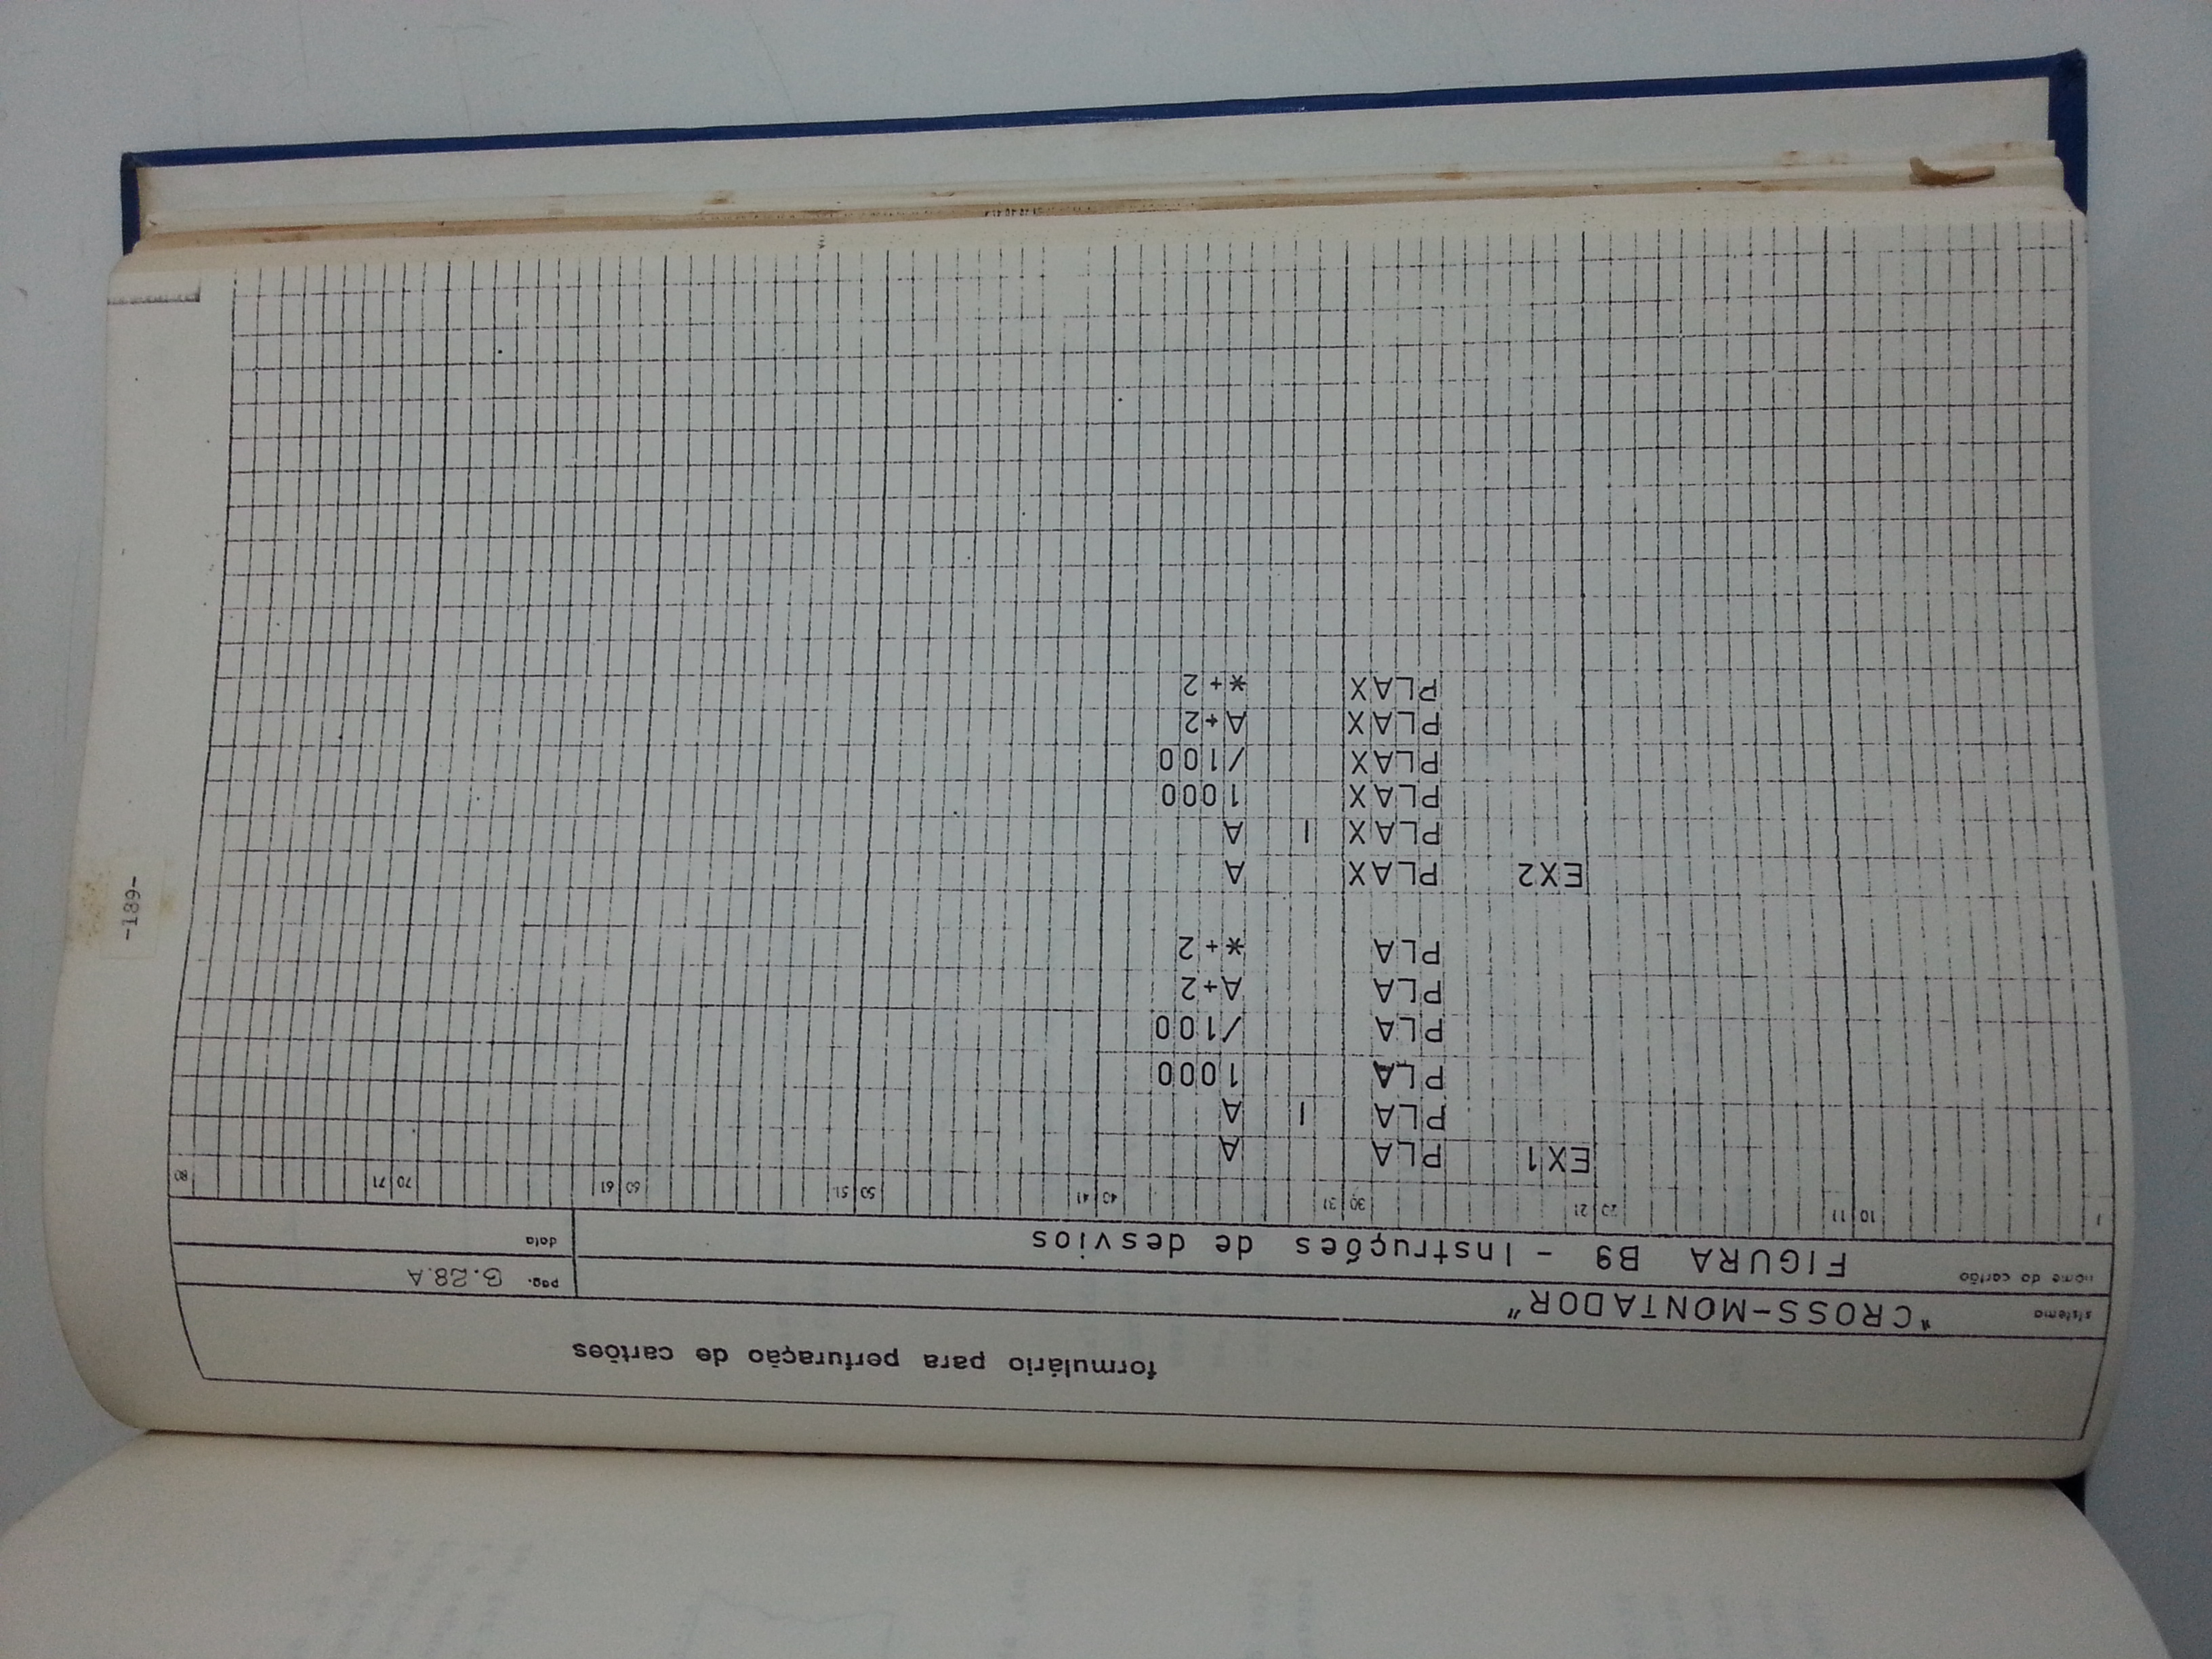 -189-
formulário para perfuração de cartões
sistema "CROSS-MONTADOR"
pag. B.28.A
nome do cartão FIGURA B9 - Instruções de desvios
data
1 10 11 20 21 30 31 40 41 50 51 60 61 70 71 80
EX1 PLA A
PLA I A
PLA 1000
PLA /100
PLA A+2
PLA *+2
EX2 PLAX A
PLAX I A
PLAX 1000
PLAX /100
PLAX A+2
PLAX *+2